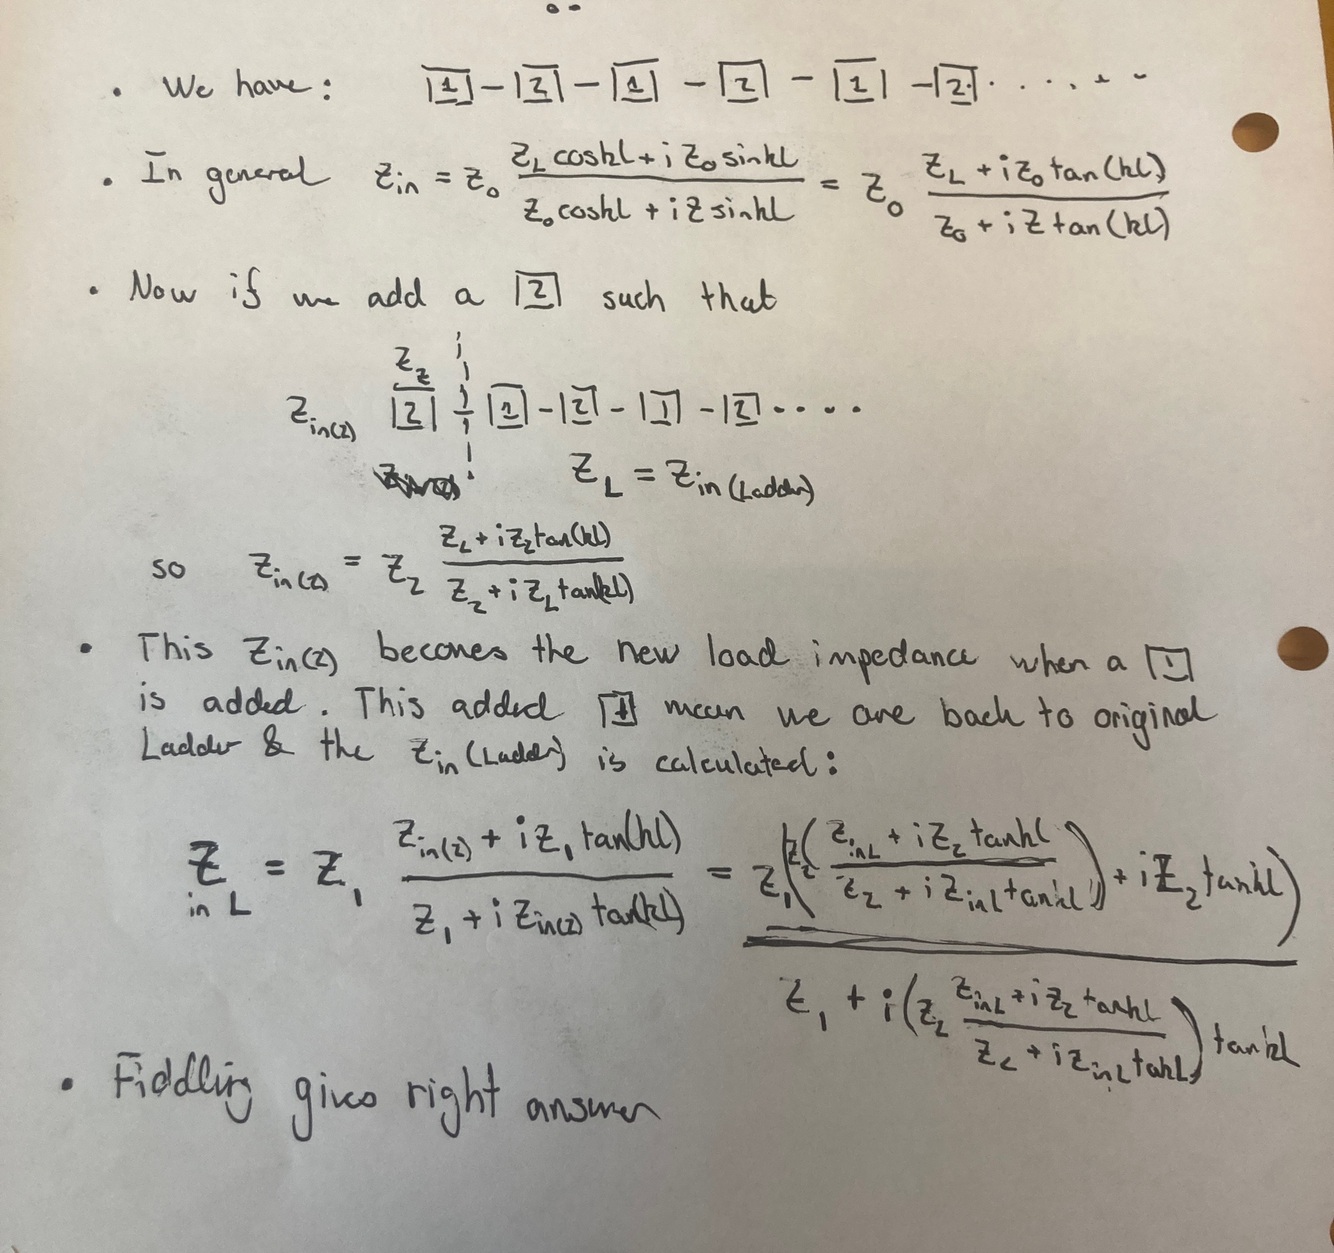 • We have: [1] - [2] - [1] - [2] - [1] - [2] . . . . . .
• In general Z_in = Z_0 (Z_L cos kl + i Z_0 sin kl) / (Z_0 cos kl + i Z sin kl) = Z_0 (Z_L + i Z_0 tan(kl)) / (Z_0 + i Z tan(kl))
• Now if we add a [2] such that
Z_2
Z_in(2) [2] ÷ [1] - [2] - [1] - [2] . . . .
Z_L = Z_in(Ladder)
so Z_in(2) = Z_2 (Z_L + i Z_2 tan(kl)) / (Z_2 + i Z_L tan(kl))
• This Z_in(2) becomes the new load impedance when a [1]
is added. This added [1] mean we are back to original
Ladder & the Z_in(Ladder) is calculated:
Z_in L = Z_1 (Z_in(2) + i Z_1 tan(kl)) / (Z_1 + i Z_in(2) tan(kl)) = Z_1 (Z_2 ((Z_inL + i Z_2 tan kl) / (Z_2 + i Z_inL tan kl)) + i Z_2 tan kl) / (Z_1 + i (Z_2 (Z_inL + i Z_2 tan kl) / (Z_2 + i Z_inL tan kl)) tan kl)
• Fiddling gives right answer